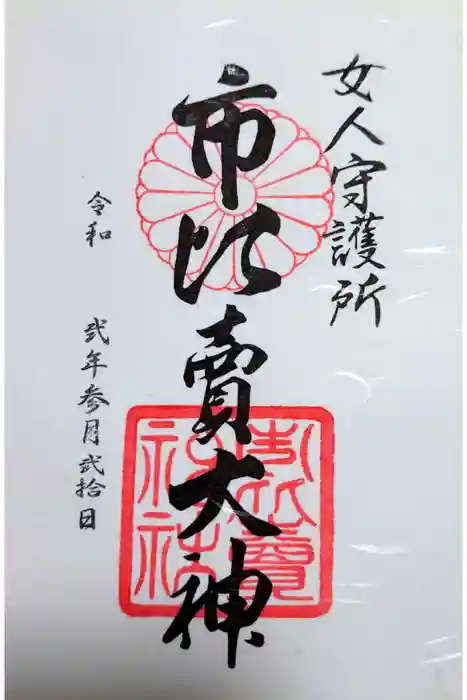 女人守護所
市比賣大神
市比賣神社
令和 弐年参月弐拾日